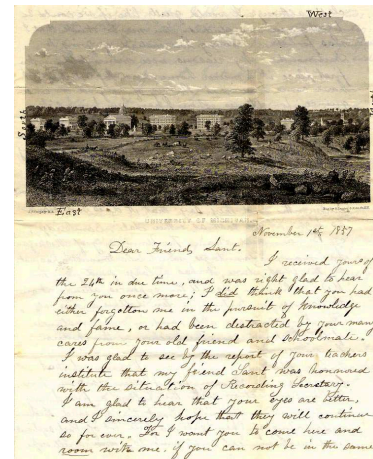 West
South
East
UNIVERSITY OF MICHIGAN.
November 1st, 1857
Dear Friend Sant.
I received yours of
the 24th in due time, and was right glad to hear
from you once more; I did think that you had
either forgotten me in the pursuit of knowledge
and fame, or had been distracted by your many
cares from your old friend and schoolmate.
I was glad to see by the report of your teachers
institute that my friend Sant was honored
with the situation of Recording Secretary.
I am glad to hear that your eyes are better,
and I sincerely hope that they will continue
so for ever. For I want you to come here and
room with me. if you can not be in the same